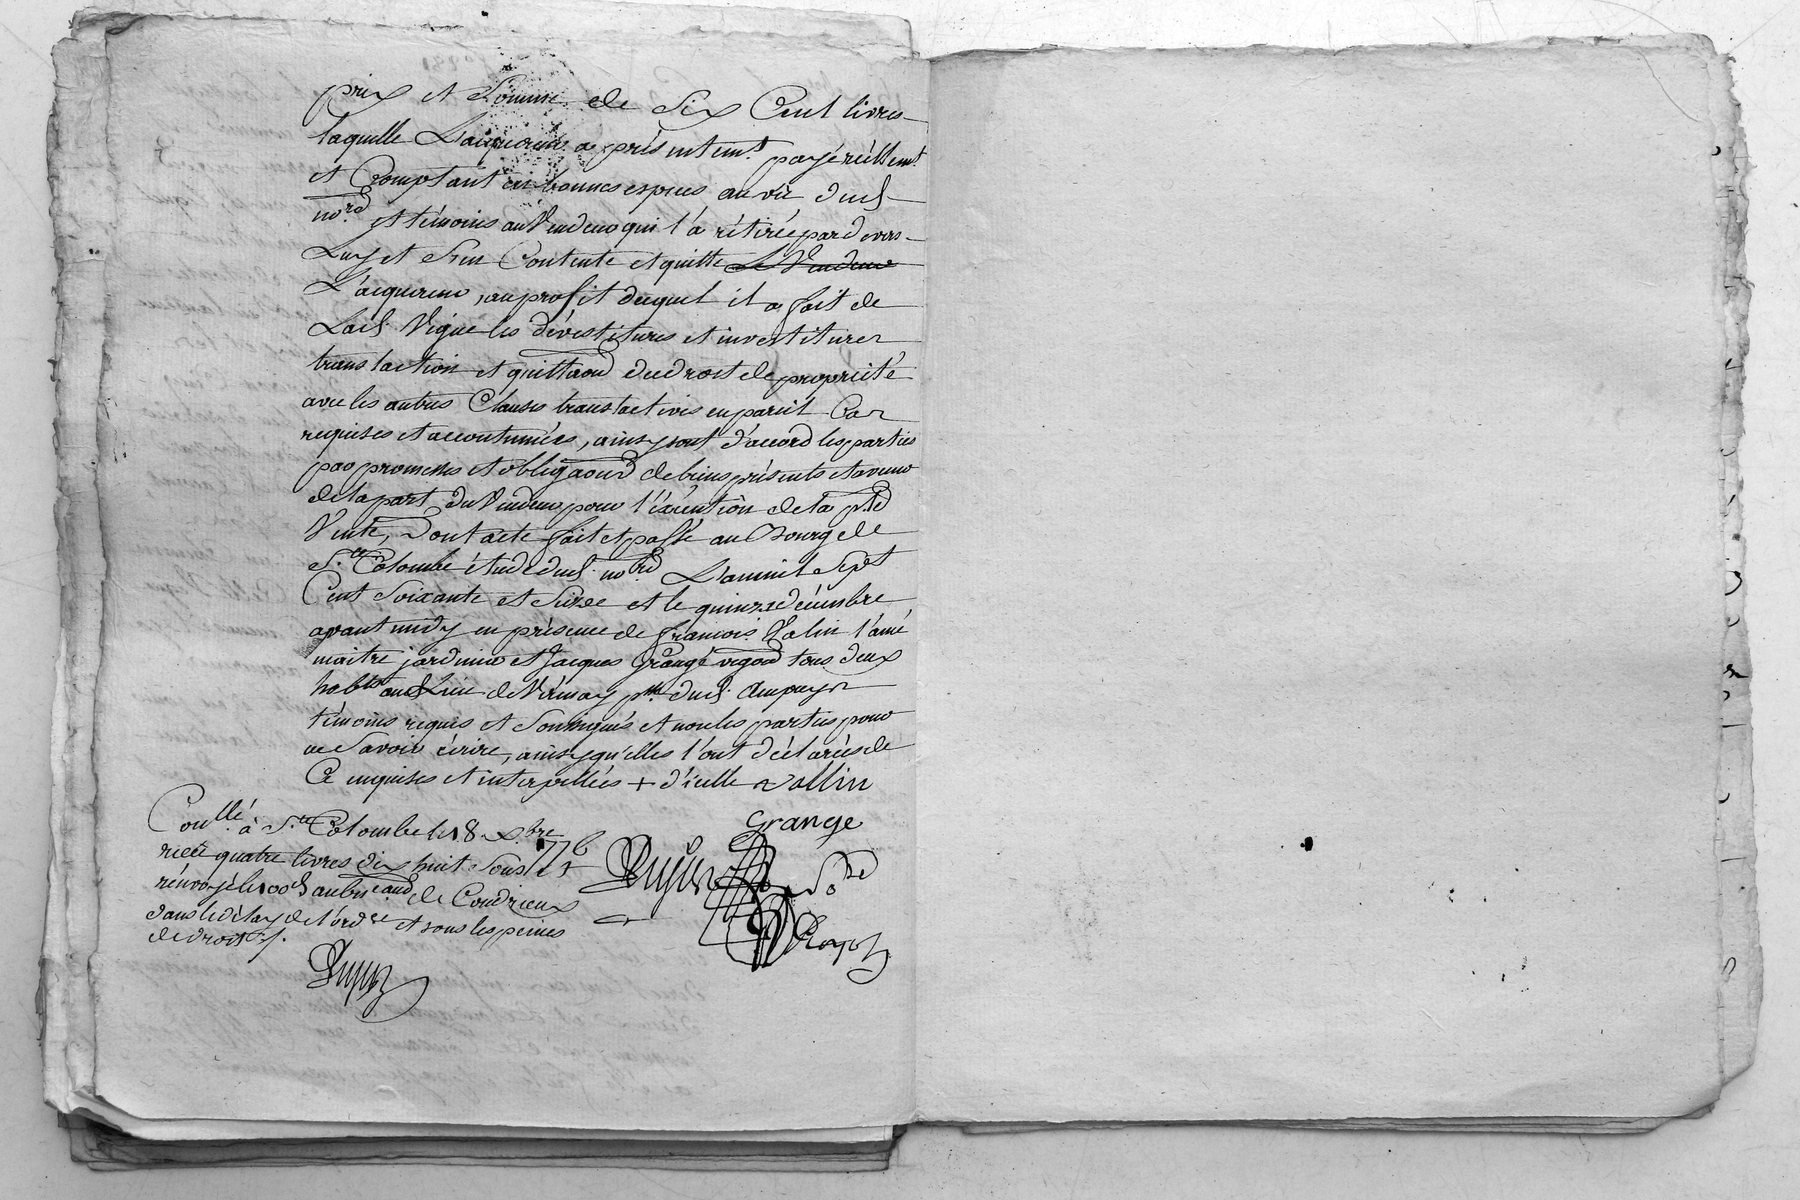 prix et somme de six Cent livres
laquelle L'acquereur a présentemt payé réellemt
et Comptant en bonnes especes au vû dud.
nore et témoins au Vendeur qui l'a rétirée pardevers
Luy et s'en Contente et quitte Le Vendeur
L'acquereur, au profit duquel il a fait de
Lad. Vigne les dévestitures et investitures
translaction et quittaon du droit de propriété
avec les autres Clauses translactives en pareil Cas
requises et accoutumées, ainsy sont d'accord les parties
par promesses et obligaons de biens présents et avenir
de la part du Vendeur pour l'éxécution de la pnte
Vente, Dont acte fait et passé au Bourg de
Ste Colombe étude dud. nore L'an mil sept
Cent soixante et seize et le quinze décembre
avant midy en présence de françois Valin l'ainé
maitre jardinier et Jacques Grange vigon tous deux
habts au Lieu de Vérenay psse dud. Ampuys
témoins requis et soussignés et non les parties pour
ne savoir écrire, ainsy qu'elles l'ont déclaré de
Ce enquises et interpellées + d'icelle vallin
Grange
Conllé à Ste Colombe le 18 xbre 1776
reçu quatre livres dix huit sous
renvoyé le 100e au bureau de Condrieux
dans le délay de l'ordce et sous les peines
de droit